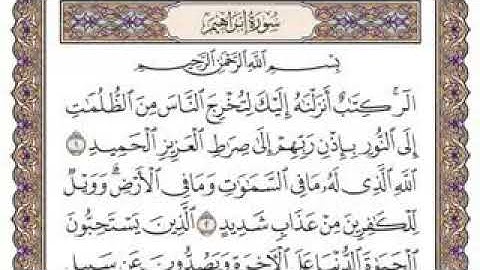 سُورَةُ إِبْرَاهِيمَ
بِسْمِ ٱللَّهِ ٱلرَّحْمَٰنِ ٱلرَّحِيمِ
الٓر ۚ كِتَٰبٌ أَنزَلْنَٰهُ إِلَيْكَ لِتُخْرِجَ ٱلنَّاسَ مِنَ ٱلظُّلُمَٰتِ
إِلَى ٱلنُّورِ بِإِذْنِ رَبِّهِمْ إِلَىٰ صِرَٰطِ ٱلْعَزِيزِ ٱلْحَمِيدِ ١
ٱللَّهِ ٱلَّذِى لَهُۥ مَا فِى ٱلسَّمَٰوَٰتِ وَمَا فِى ٱلْأَرْضِ ۗ وَوَيْلٌ
لِّلْكَٰفِرِينَ مِنْ عَذَابٍ شَدِيدٍ ٢ ٱلَّذِينَ يَسْتَحِبُّونَ
ٱلْحَيَوٰةَ ٱلدُّنْيَا عَلَى ٱلْءَاخِرَةِ وَيَصُدُّونَ عَن سَبِيلِ